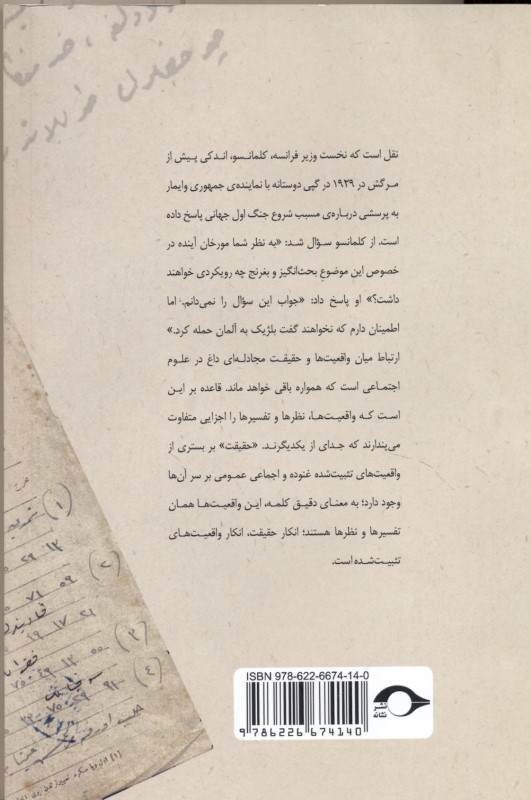 نقل است که نخست وزیر فرانسه، کلمانسو، اندکی پیش از
مرگش در ۱۹۲۹ در گپی دوستانه با نماینده‌ی جمهوری وایمار
به پرسشی درباره‌ی مسبب شروع جنگ اول جهانی پاسخ داده
است. از کلمانسو سؤال شد: «به نظر شما مورخان آینده در
خصوص این موضوع بحث‌انگیز و بغرنج چه رویکردی خواهند
داشت؟» او پاسخ داد: «جواب این سؤال را نمی‌دانم. اما
اطمینان دارم که نخواهند گفت بلژیک به آلمان حمله کرد.»
ارتباط میان واقعیت‌ها و حقیقت مجادله‌ای داغ در علوم
اجتماعی است که همواره باقی خواهد ماند. قاعده بر این
است که واقعیت‌ها، نظرها و تفسیرها را اجزایی متفاوت
می‌پندارند که جدای از یکدیگرند. «حقیقت» بر بستری از
واقعیت‌های تثبیت‌شده غنوده و اجماعی عمومی بر سر آن‌ها
وجود دارد؛ به معنای دقیق کلمه، این واقعیت‌ها همان
تفسیرها و نظرها هستند؛ انکار حقیقت، انکار واقعیت‌های
تثبیت‌شده است.
(۱)
(۲)
(۳)
(۴)
ISBN 978-622-6674-14-0
9 786226 674140
نشر
نشانه